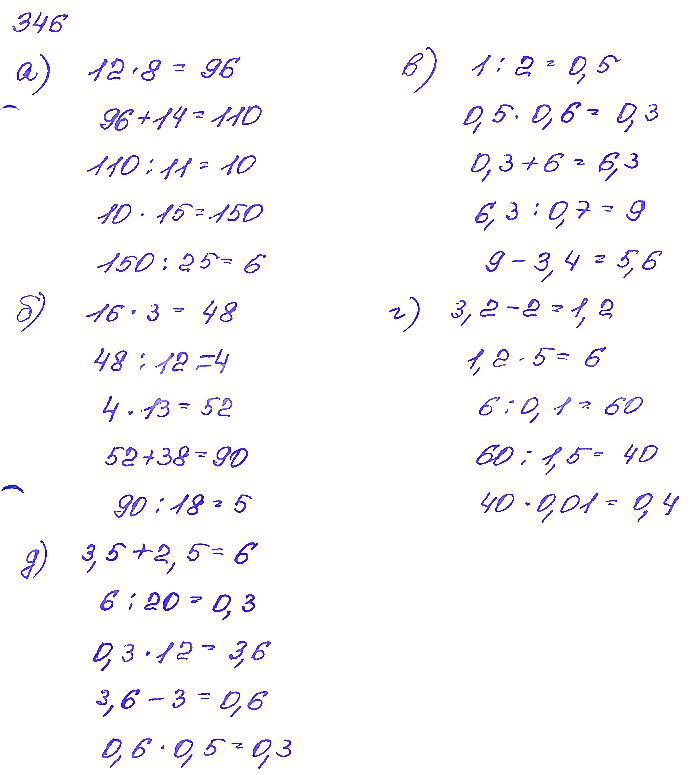 346
а) 12 · 8 = 96
96 + 14 = 110
110 : 11 = 10
10 · 15 = 150
150 : 25 = 6
б) 16 · 3 = 48
48 : 12 = 4
4 · 13 = 52
52 + 38 = 90
90 : 18 = 5
в) 1 : 2 = 0,5
0,5 · 0,6 = 0,3
0,3 + 6 = 6,3
6,3 : 0,7 = 9
9 - 3,4 = 5,6
г) 3,2 - 2 = 1,2
1,2 · 5 = 6
6 : 0,1 = 60
60 : 1,5 = 40
40 · 0,01 = 0,4
д) 3,5 + 2,5 = 6
6 : 20 = 0,3
0,3 · 12 = 3,6
3,6 - 3 = 0,6
0,6 · 0,5 = 0,3